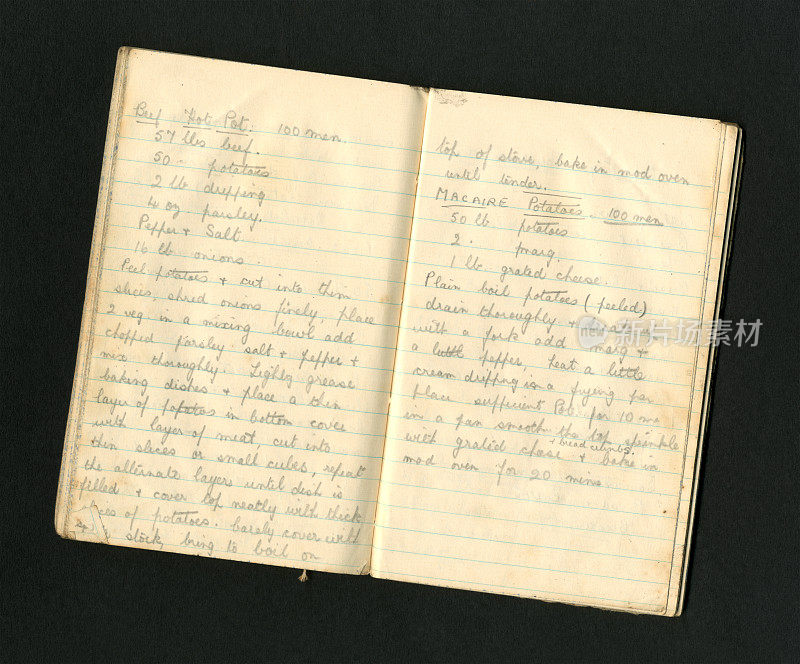 Beef Hot Pot. 100 men.
57 lbs beef.
50 " potatoes
2 lb dripping
4 oz parsley.
Pepper + Salt
16 lb onions.
Peel potatoes + cut into thin
slices, shred onions finely, place
2 veg in a mixing bowl add
chopped parsley salt + pepper +
mix thoroughly. Lighly grease
baking dishes + place a thin
layer of potatos in bottom cover
with layer of meat cut into
thin slices or small cubes, repeat
the alternate layers until dish is
filled + cover top neatly with thick
of potatoes. barely cover with
stock, bring to boil on
top of stove, bake in mod oven
until tender.
MACAIRE Potatoes. 100 men
50 lb potatoes
2 " marg.
1 lb grated cheese.
Plain boil potatoes (peeled)
drain thoroughly +
with a fork add marg +
a little pepper, heat a little
cream dripping in a frying pan
place sufficient Pot. for 10 men
in a pan smooth the top sprinkle
with grated cheese + bread crumbs. + bake in
mod oven for 20 mins.
iStock
Credit: 新图片素材.com